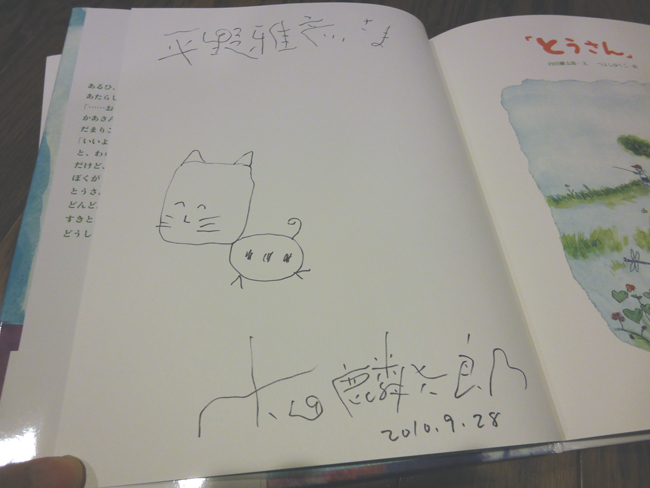 平野雅彦さま
あるひ、
あたらし
「……お
かあさん
だまりこ
「いいよ
と、わ
だけど、
ぼくが
とうさ
どんど
すきと
どうし
内田麟太郎
2010.9.28
「とうさん」
内田麟太郎・文 つよしゆうこ・絵